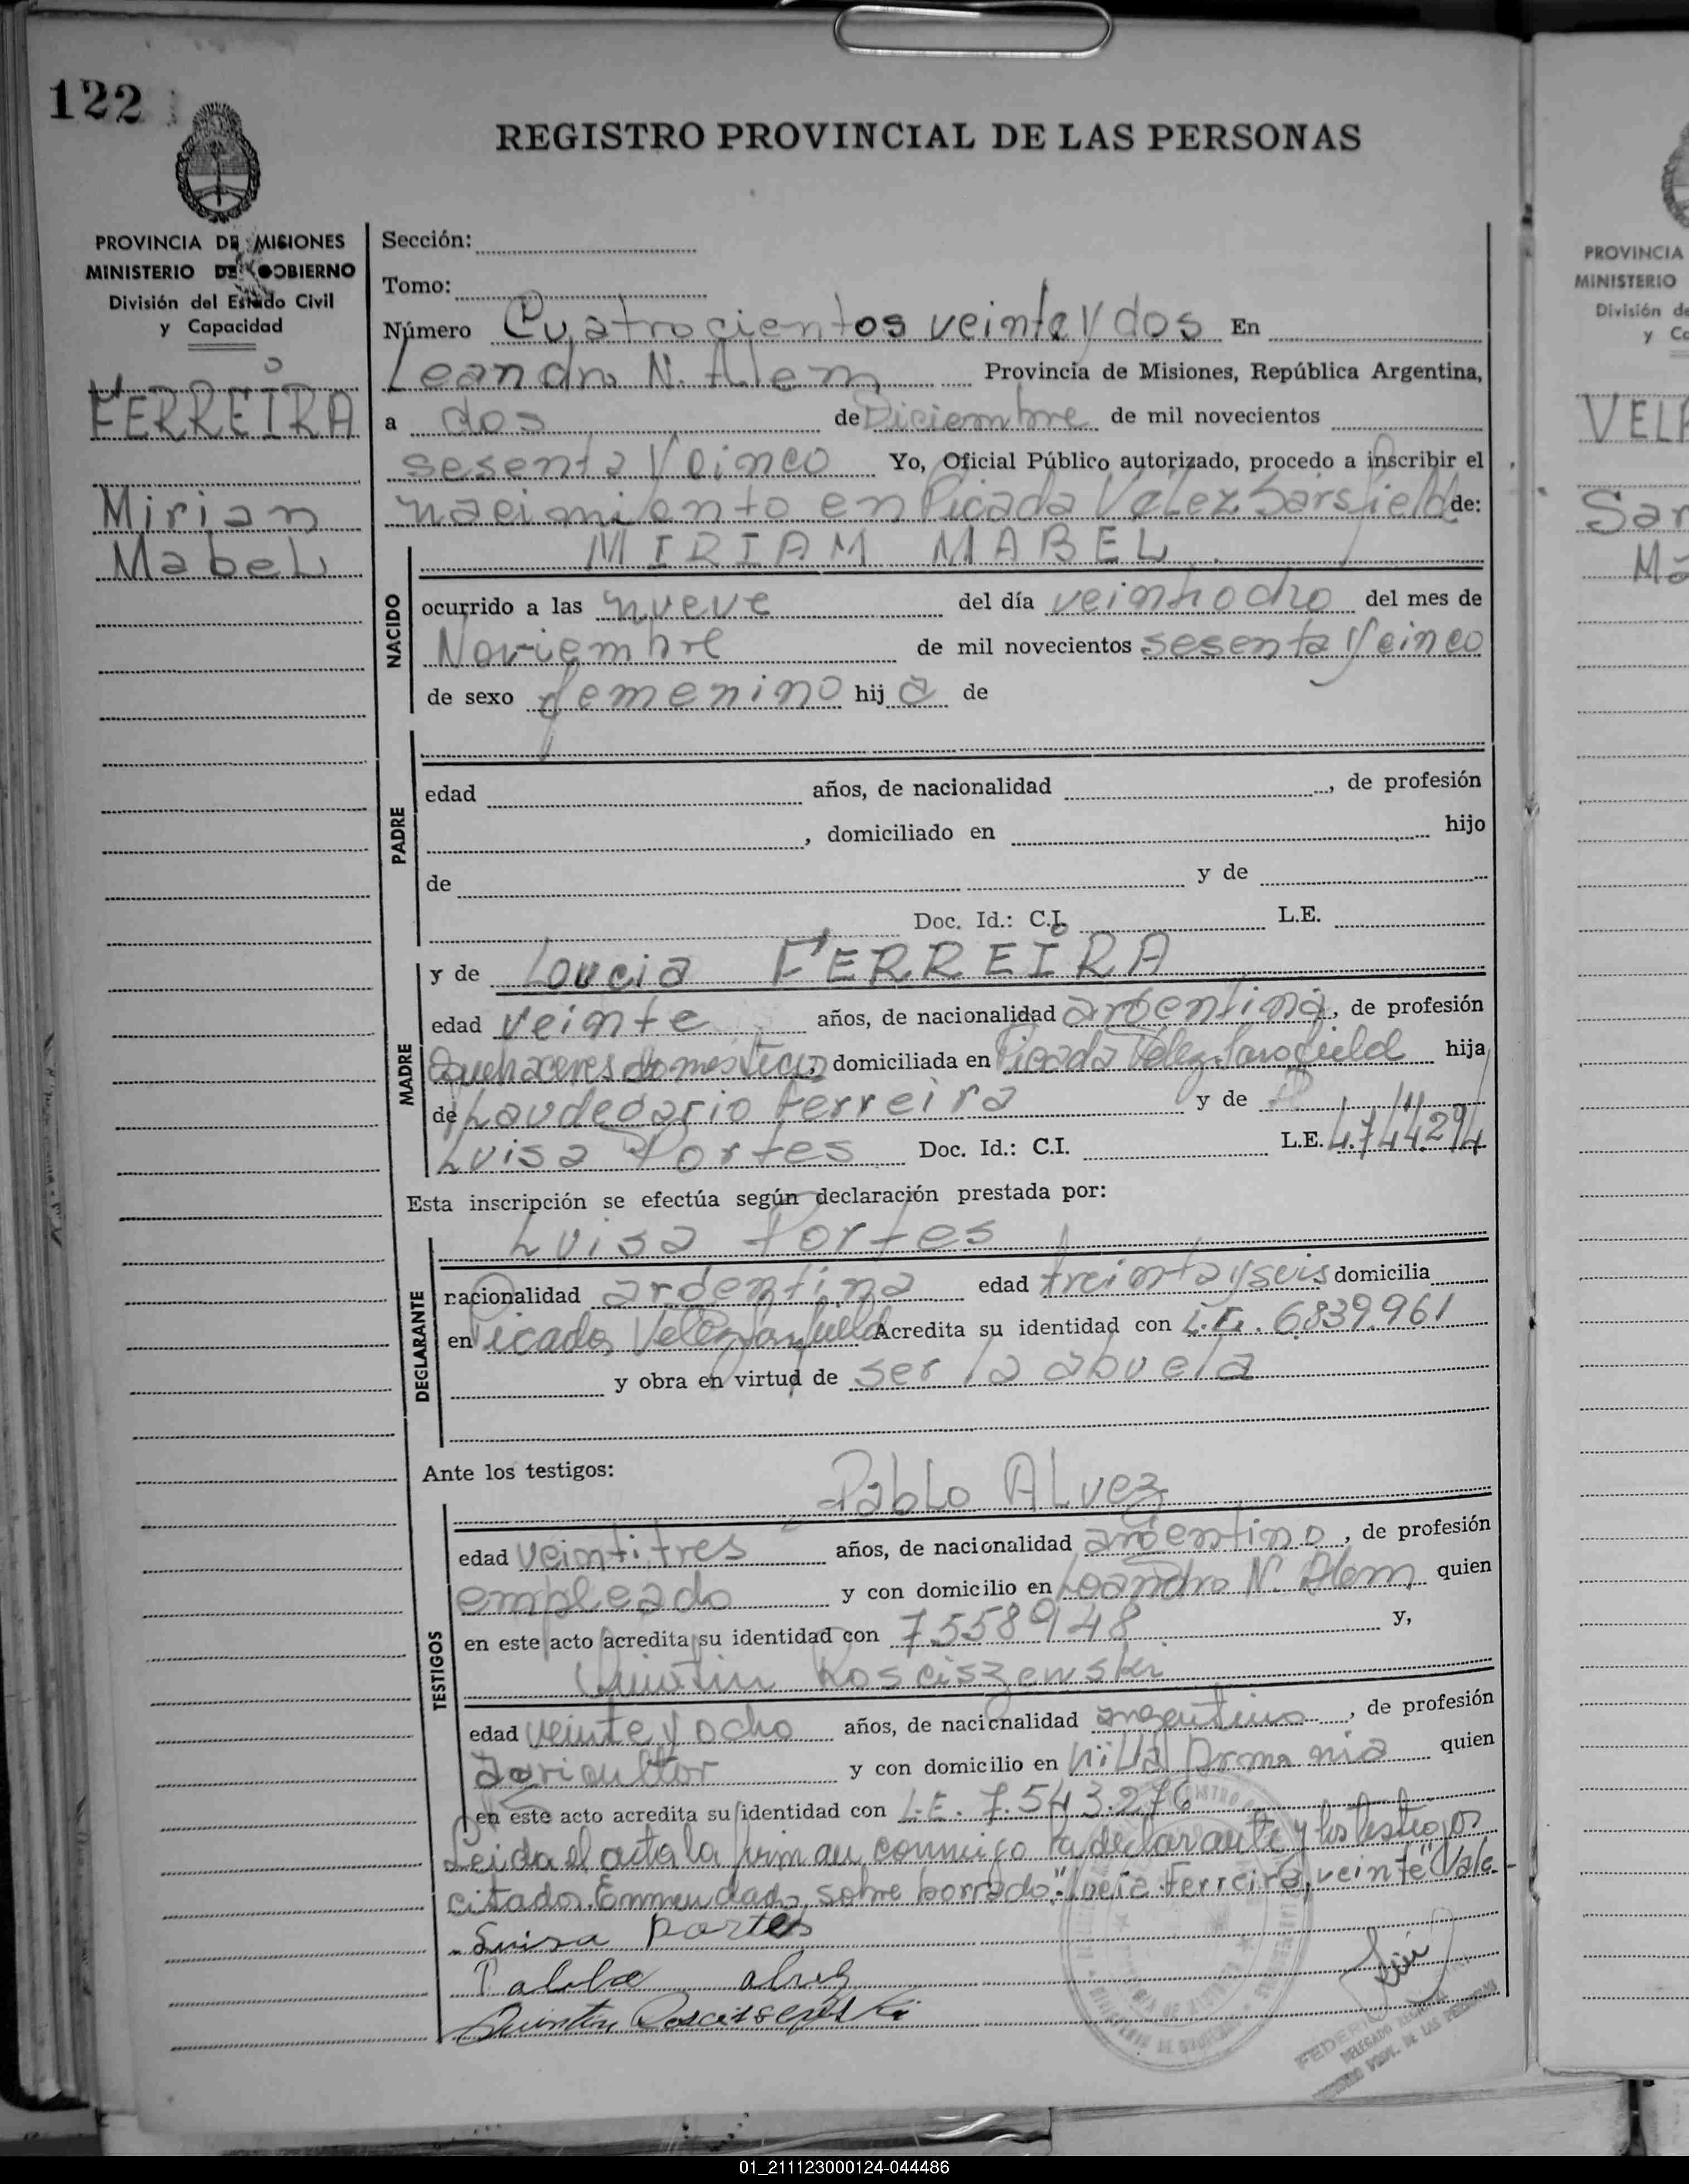 122
REGISTRO PROVINCIAL DE LAS PERSONAS
PROVINCIA DE MISIONES
MINISTERIO DE GOBIERNO
División del Estado Civil
y Capacidad
FERREIRA
Mirian
Mabel
Sección:
Tomo:
Número Cuatrocientos veinte y dos En
Leandro N. Alem Provincia de Misiones, República Argentina,
a dos de Diciembre de mil novecientos
sesenta y cinco Yo, Oficial Público autorizado, procedo a inscribir el
nacimiento en Picada Velez Sarsfield de:
MIRIAM MABEL
NACIDO
ocurrido a las nueve del día veintiocho del mes de
Noviembre de mil novecientos sesenta y cinco
de sexo femenino hija de
PADRE
edad años, de nacionalidad , de profesión
, domiciliado en hijo
de y de
Doc. Id.: C.I. L.E.
MADRE
y de Loucia FERREIRA
edad veinte años, de nacionalidad argentina, de profesión
Quehaceres domésticos, domiciliada en Picada Velez Sarsfield hija
de Laudegario Ferreira y de
Luisa Portes Doc. Id.: C.I. L.E. 4.744.294
Esta inscripción se efectúa según declaración prestada por:
DECLARANTE
Luisa Portes
nacionalidad argentina edad treinta y seis domicilia
en Picada Velez Sarsfield Acredita su identidad con L.C. 6.839.961
y obra en virtud de ser la abuela
Ante los testigos:
TESTIGOS
Pablo Alvez
edad veintitres años, de nacionalidad argentino, de profesión
empleado y con domicilio en Leandro N. Alem quien
en este acto acredita su identidad con 7.558.948 y,
Quintin Kosciszewski
edad veinte y ocho años, de nacionalidad argentino, de profesión
agricultor y con domicilio en Villa quien
en este acto acredita su identidad con L.E. 7.543.276
Leida el acta la firman conmigo la declarante y los testigos
citados. Enmendado sobre borrado: "Lucia Ferreira, veinte" Vale-
Luisa portes
Pablo alvez
Quintin
FEDERICO
DELEGADO
PROV. DE LAS PERSONAS
PROVINCIA
MINISTERIO
División de
y Ca
VEL
Sar
Ma
01_211123000124-044486